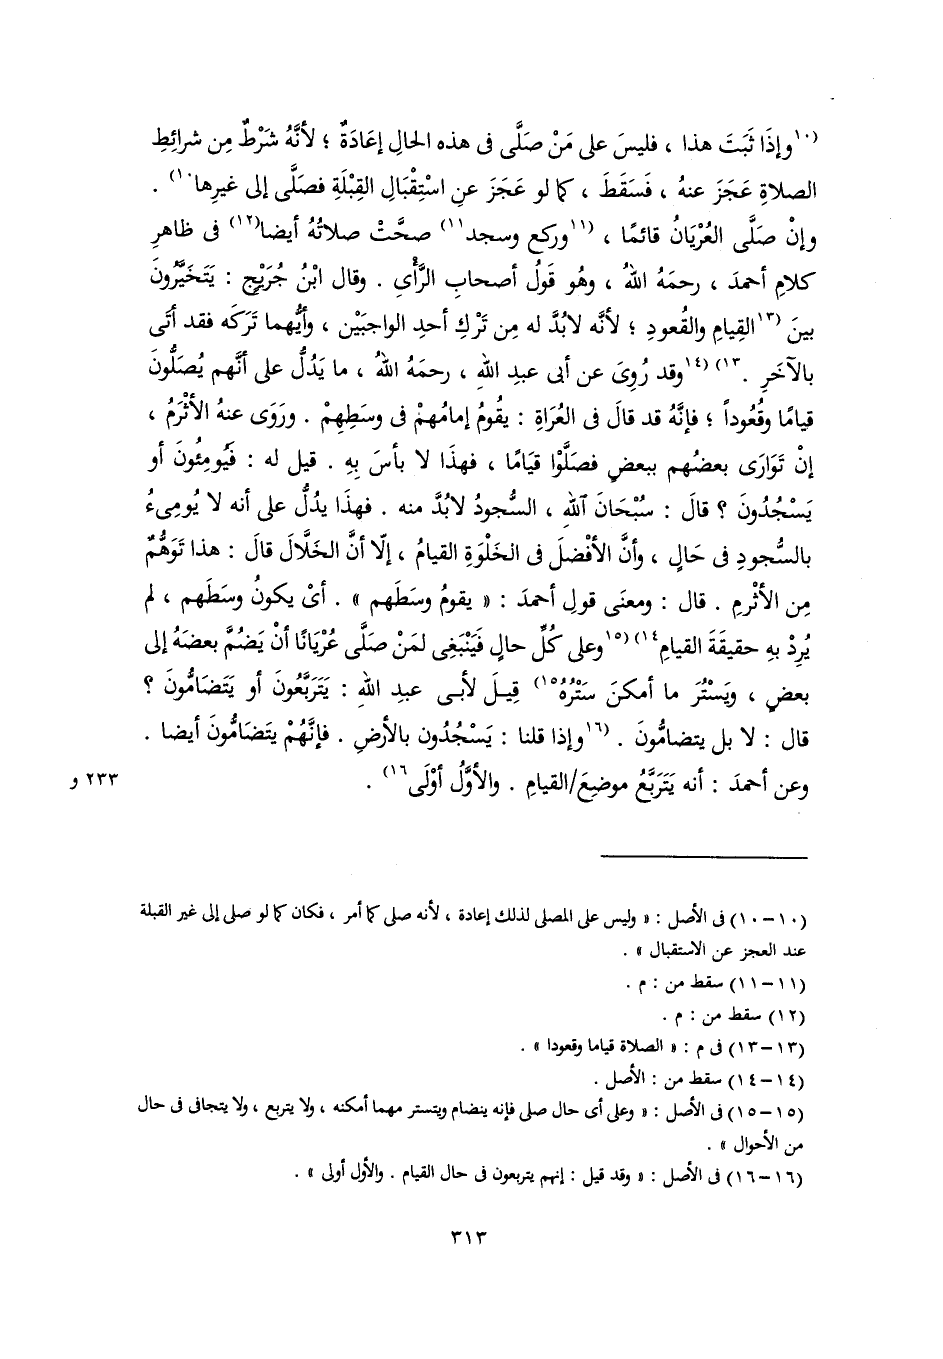 (١٠وإذَا ثَبَتَ هذا ، فليسَ على مَنْ صَلَّى فى هذه الحالِ إعَادَةٌ ؛ لأنَّهُ شَرْطٌ مِن شرائِطِ
الصلاةِ عَجَزَ عنهُ ، فَسَقَطَ ، كما لو عَجَزَ عنِ اسْتِقْبَالِ القِبْلَةِ فصَلَّى إلى غيرِها١٠) .
وإنْ صَلَّى العُرْيَانُ قائمًا ، (١١وركع وسجد١١) صحَّتْ صلاتُهُ أيضا(١٢) فى ظاهرِ
كلامِ أحمدَ ، رحمَهُ اللهُ ، وهُو قَولُ أصحابِ الرَّأْىِ . وقال ابْنُ جُرَيْجٍ : يَتَخَيَّرُونَ
بينَ (١٣القِيامِ والقُعودِ ؛ لأنَّه لابُدَّ له مِن تَرْكِ أحدِ الواجبَيْن ، وأيُّهما تَرَكَه فقد أتَى
بالآخَرِ . ١٣) (١٤وقد رُوِىَ عن أبى عبدِ اللهِ ، رحمَهُ اللهُ ، ما يَدُلُّ على أنَّهم يُصَلُّونَ
قيامًا وقُعُوداً ؛ فإنَّهُ قد قالَ فى العُرَاةِ : يقُومُ إمامُهمْ فى وسَطِهِمْ . ورَوَى عنهُ الأثْرَمُ ،
إنْ تَوَارَى بعضُهم ببعضٍ فصَلَّوْا قيَامًا ، فهذَا لا بأسَ بِهِ . قيل له : فَيُومِئُونَ أو
يَسْجُدُونَ ؟ قالَ : سُبْحَانَ اللهِ ، السُّجودُ لابُدَّ منه . فهذا يدُلُّ على أنه لا يُومِىءُ
بالسُّجودِ فى حَالٍ ، وأنَّ الأفْضلَ فى الخَلْوَةِ القيامُ ، إلّا أنَّ الخَلَّالَ قالَ : هذا تَوَهُّمٌ
مِن الأثْرمِ . قال : ومعنَى قولِ أحمدَ : « يقومُ وسَطَهم » . أىْ يكونُ وسَطَهم ، لم
يُرِدْ بهِ حقيقَةَ القيامِ١٤) (١٥وعلى كُلِّ حالٍ فَيَنْبَغِى لمَنْ صَلَّى عُرْيَانًا أنْ يَضُمَّ بعضَهُ إلى
بعضٍ ، ويَسْتُرَ ما أمكنَ سَتْرُهُ١٥) قِيلَ لأبى عبدِ اللهِ : يَتَرَبَّعُونَ أو يَتَضَامُّونَ ؟
قال : لا بل يتضامُّونَ . (١٦وإذا قلنا : يَسْجُدُون بالأرضِ . فإنَّهُمْ يتَضَامُّونَ أيضا .
وعن أحمدَ : أنه يَتَرَبَّعُ موضِعَ/القيامِ . والأوَّلُ أوْلَى١٦) .
٢٣٣ و
(١٠-١٠) فى الأصل : « وليس على المصلى لذلك إعادة ، لأنه صلى كما أمر ، فكان كما لو صلى إلى غير القبلة
عند العجز عن الاستقبال » .
(١١-١١) سقط من : م .
(١٢) سقط من : م .
(١٣-١٣) فى م : « الصلاة قياما وقعودا » .
(١٤-١٤) سقط من : الأصل .
(١٥-١٥) فى الأصل : « وعلى أى حال صلى فإنه ينضام ويتستر مهما أمكنه ، ولا يتربع ، ولا يتجافى فى حال
من الأحوال » .
(١٦-١٦) فى الأصل : « وقد قيل : إنهم يتربعون فى حال القيام . والأول أولى » .
٣١٣